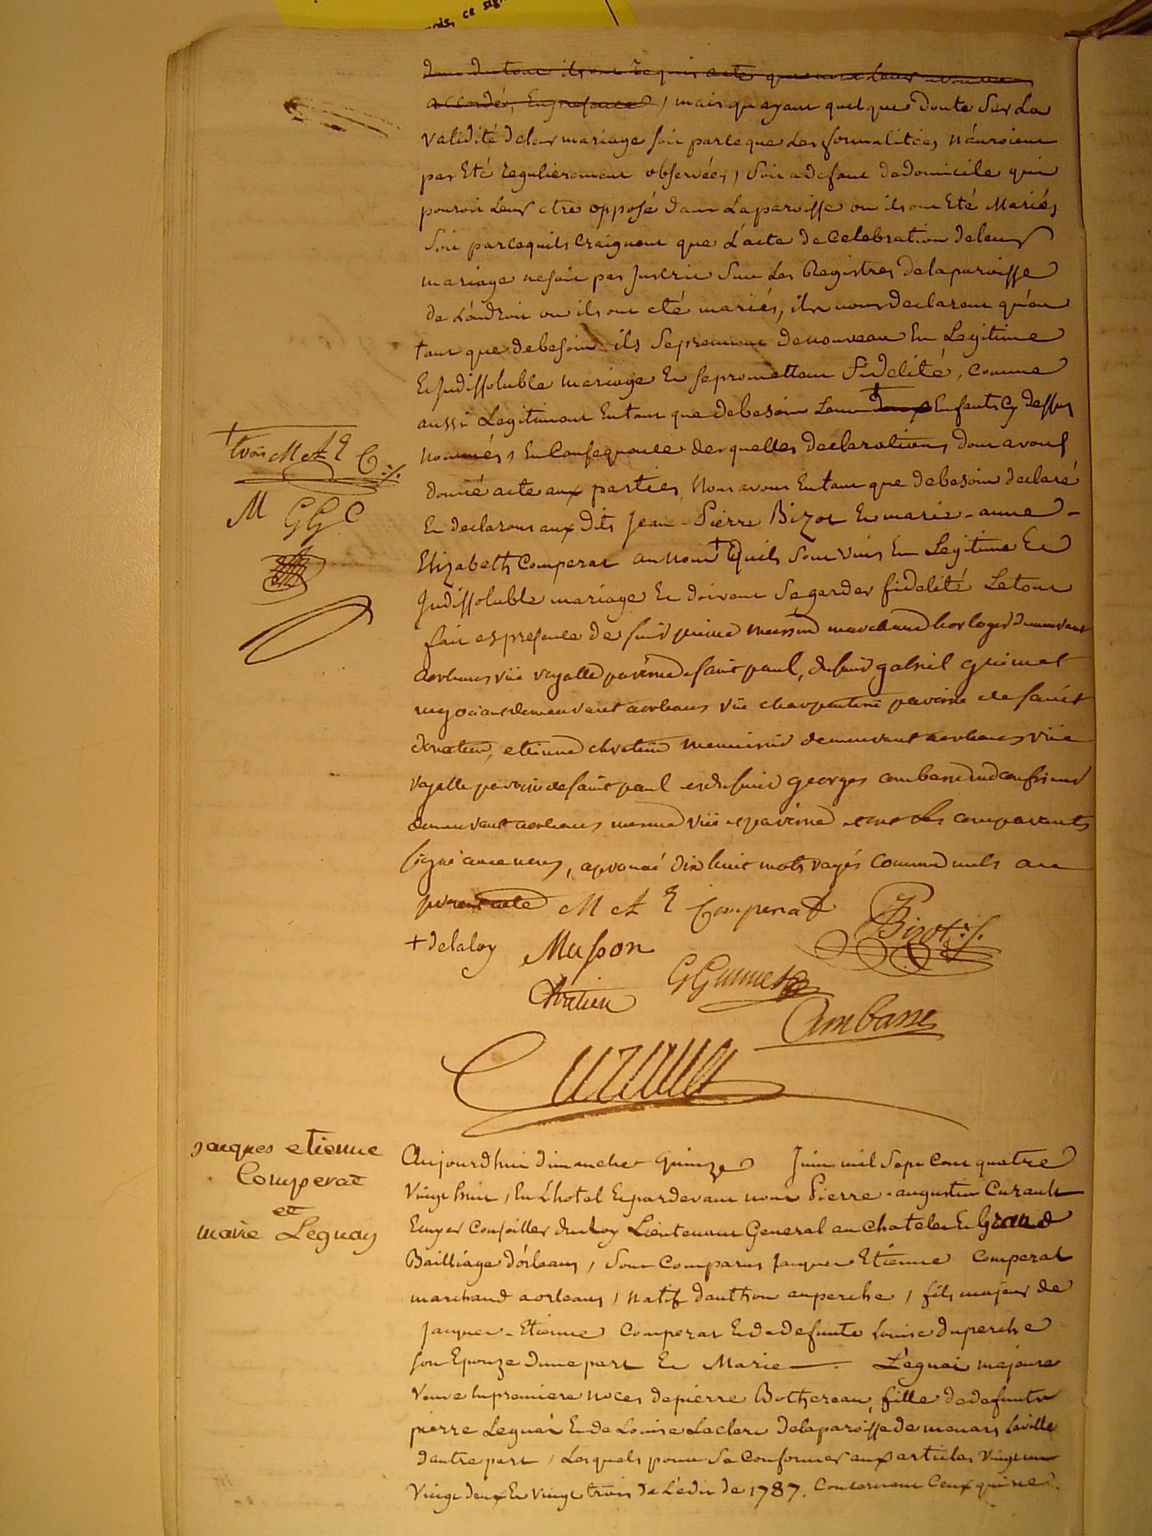 nds, ce sig
dont du tout ils ont requis acte que nous Leur avons
accordé, En presence / mais qu ayant quelque Doute Sur La
validité de leur mariage soit parce que Les formalitées N'auroient
pas Eté Regulierement observées, Soit a defaut de domicile qui
pouroit Leur etre opposé dans La paroisse ou ils ont Eté Mariés
Soit parcequils Craignent que L'acte de Celebration de leur
mariage ne soit pas Inscrit Sur Les Registres de la paroisse
de L'endroit ou ils ont eté mariés, ils nous declarent qu'en
tant que de besoin ils Se prennent de nouveau En Legitime
Et Indissoluble mariage Et se promettent Fidelité, Comme
aussi Legitiment En tant que de besoin Leurs deux † Enfants Cy dessus
Nommés, En Consequence des quelles declarations dont avons
donné acte aux parties, Nous avons En tant que de besoin declaré
Et declarons aux dits Jean-Pierre Bizot Et marie-anne-
Elizabeth Comperat au nom † Quils Sont Unis En Legitime Et
Indissoluble mariage Et doivent Se garder fidelité Le tout
fait es presence de suid Musson marchand horloger demeurant
a orleans rüe royalle paroisse de saint paul, du suid gabriel grimet
negociant demeurant a orleans rüe charpenterie paroisse de saint
donatien, etienne chretien menuisier demeurant a orleans rüe
royalle paroisse de saint paul et du suid georges ambasse
demeurant a orleans meme rüe et paroisse et ont Les comparants
signé avec nous, aprouvé dix huit mots rayés Comme nuls au
present acte
M A E Comperat
Bizot
† de la loy
Musson
GGrimet
Chretien
Ambasse
Curault
† trois M A E C
M GG C
Jacques etienne
Comperat
et
marie Leguay
Aujourdhui dimanche Quinze Juin mil Sept Cent quatre
Vingt huit, En L'hotel Et pardevant nous Pierre-augustin Curault
Ecuyer Conseiller du Roy Lieutenant General au Chatelet Et Grand
Bailliage d'orleans, Sont Comparus Jacques Etienne Comperat
marchand a orleans, Natif d'authon au perche, fils majeur de
Jacques-Etienne Comperat Et de defunte Louise Duperche
son Epouze d'une part Et Marie Leguai majeure
Veuve En premiere noces de pierre Bothereau, fille de defunts
pierre Leguai Et de Louise Leclerc de la paroisse de menars laville
d'autre part, Lesquels pour Se Conformer aux articles Vingt un
Vingt deux Et Vingt trois de L'edit de 1787. Concernant Ceux qui ne